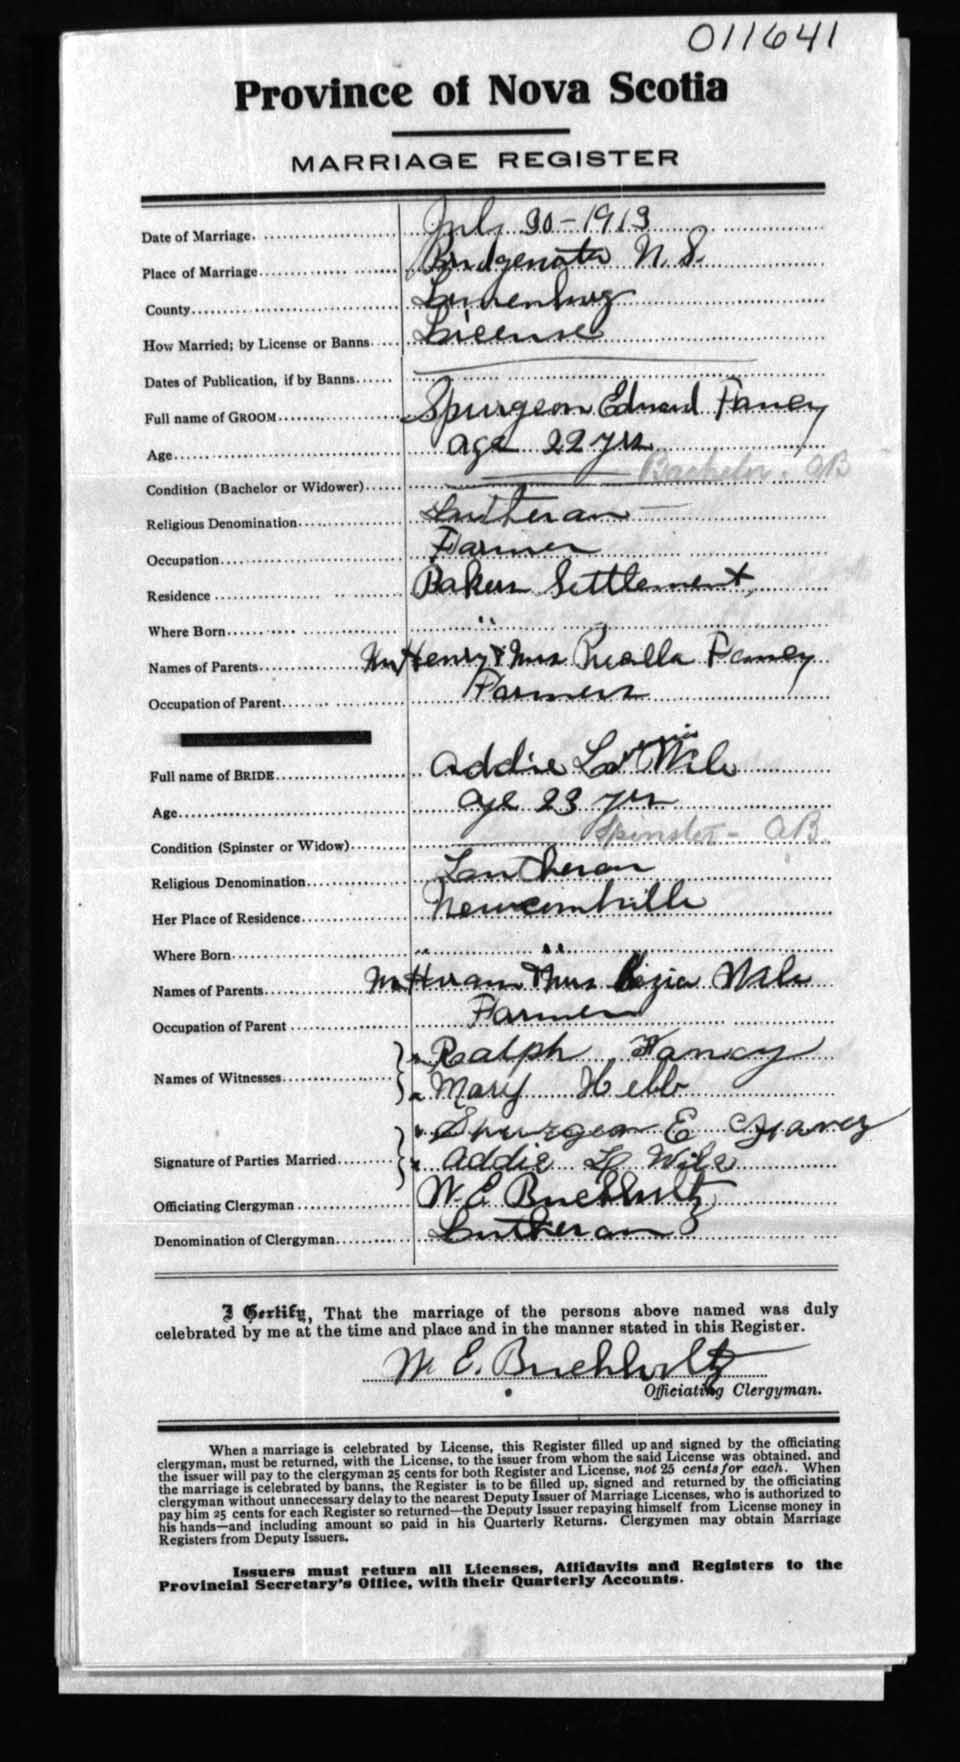 011641
Province of Nova Scotia
MARRIAGE REGISTER
Date of Marriage. July 30-1913
Place of Marriage Bridgewater N.S.
County Lunenburg
How Married; by License or Banns License
Dates of Publication, if by Banns
Full name of GROOM Spurgeon Edward Faney
Age age 22 yrs
Condition (Bachelor or Widower) Bachelor. AB
Religious Denomination Lutheran
Occupation Farmer
Residence Bakers Settlement,
Where Born "
Names of Parents Mr Henry & Mrs Faney
Occupation of Parent Farmers
Full name of BRIDE Addie Wile
Age age 23 yrs
Condition (Spinster or Widow) Spinster - AB.
Religious Denomination Lutheran
Her Place of Residence Newcombville
Where Born " "
Names of Parents Mr Hiram & Mrs Kezia Wile
Occupation of Parent Farmer
Names of Witnesses Ralph Fancy
Mary Hebb
Spurgeon E Fancy
Signature of Parties Married Addie L Wile
Officiating Clergyman W. E. Buehholtz
Denomination of Clergyman Lutheran
I Certify, That the marriage of the persons above named was duly
celebrated by me at the time and place and in the manner stated in this Register.
W. E. Buehholtz
Officiating Clergyman.
When a marriage is celebrated by License, this Register filled up and signed by the officiating
clergyman, must be returned, with the License, to the issuer from whom the said License was obtained, and
the issuer will pay to the clergyman 25 cents for both Register and License, not 25 cents for each. When
the marriage is celebrated by banns, the Register is to be filled up, signed and returned by the officiating
clergyman without unnecessary delay to the nearest Deputy Issuer of Marriage Licenses, who is authorized to
pay him 25 cents for each Register so returned—the Deputy Issuer repaying himself from License money in
his hands—and including amount so paid in his Quarterly Returns. Clergymen may obtain Marriage
Registers from Deputy Issuers.
Issuers must return all Licenses, Affidavits and Registers to the
Provincial Secretary's Office, with their Quarterly Accounts.